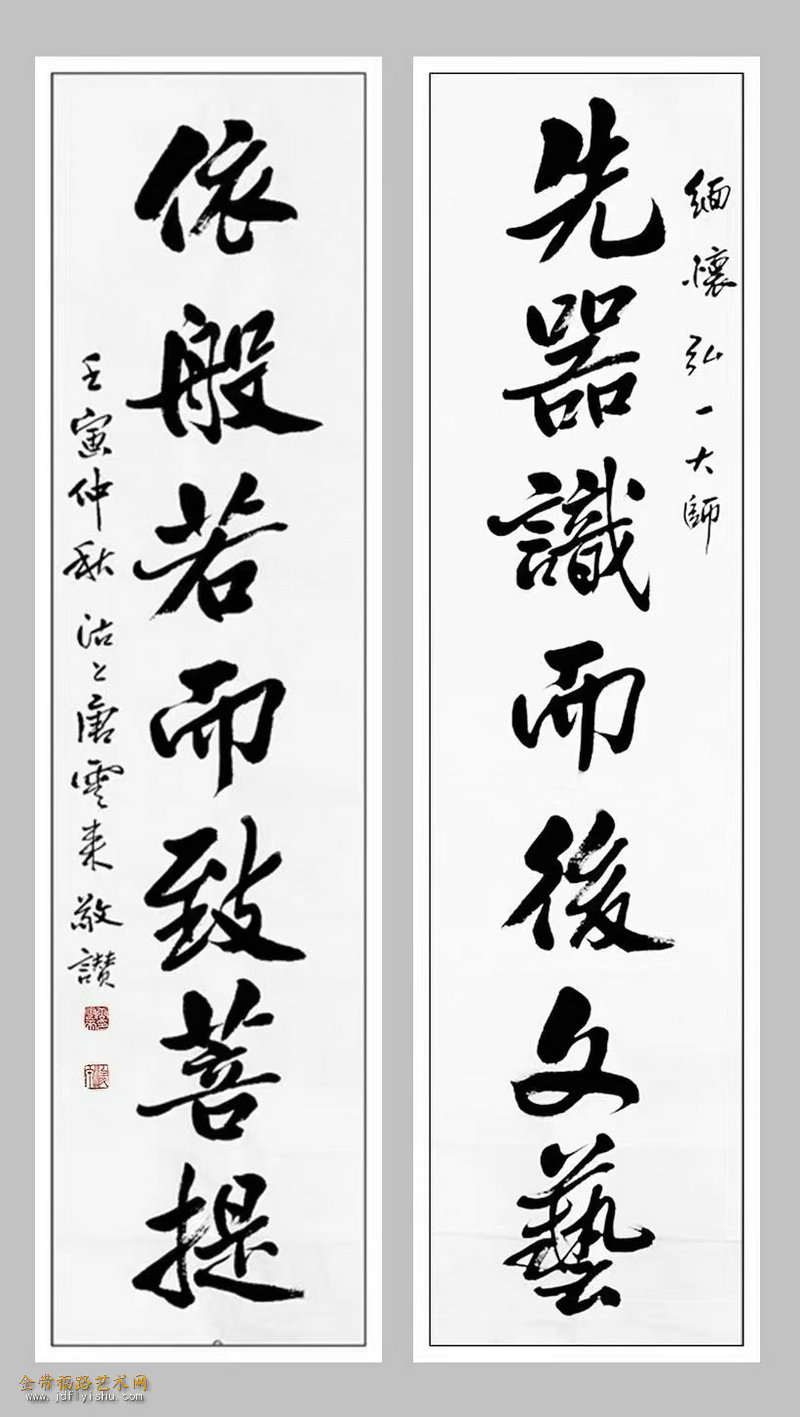 缅懷弘一大師
先器識而後文藝
依般若而致菩提
壬寅仲秋沽上唐雲来敬讃
金带福路艺术网
www.jdflyishu.com